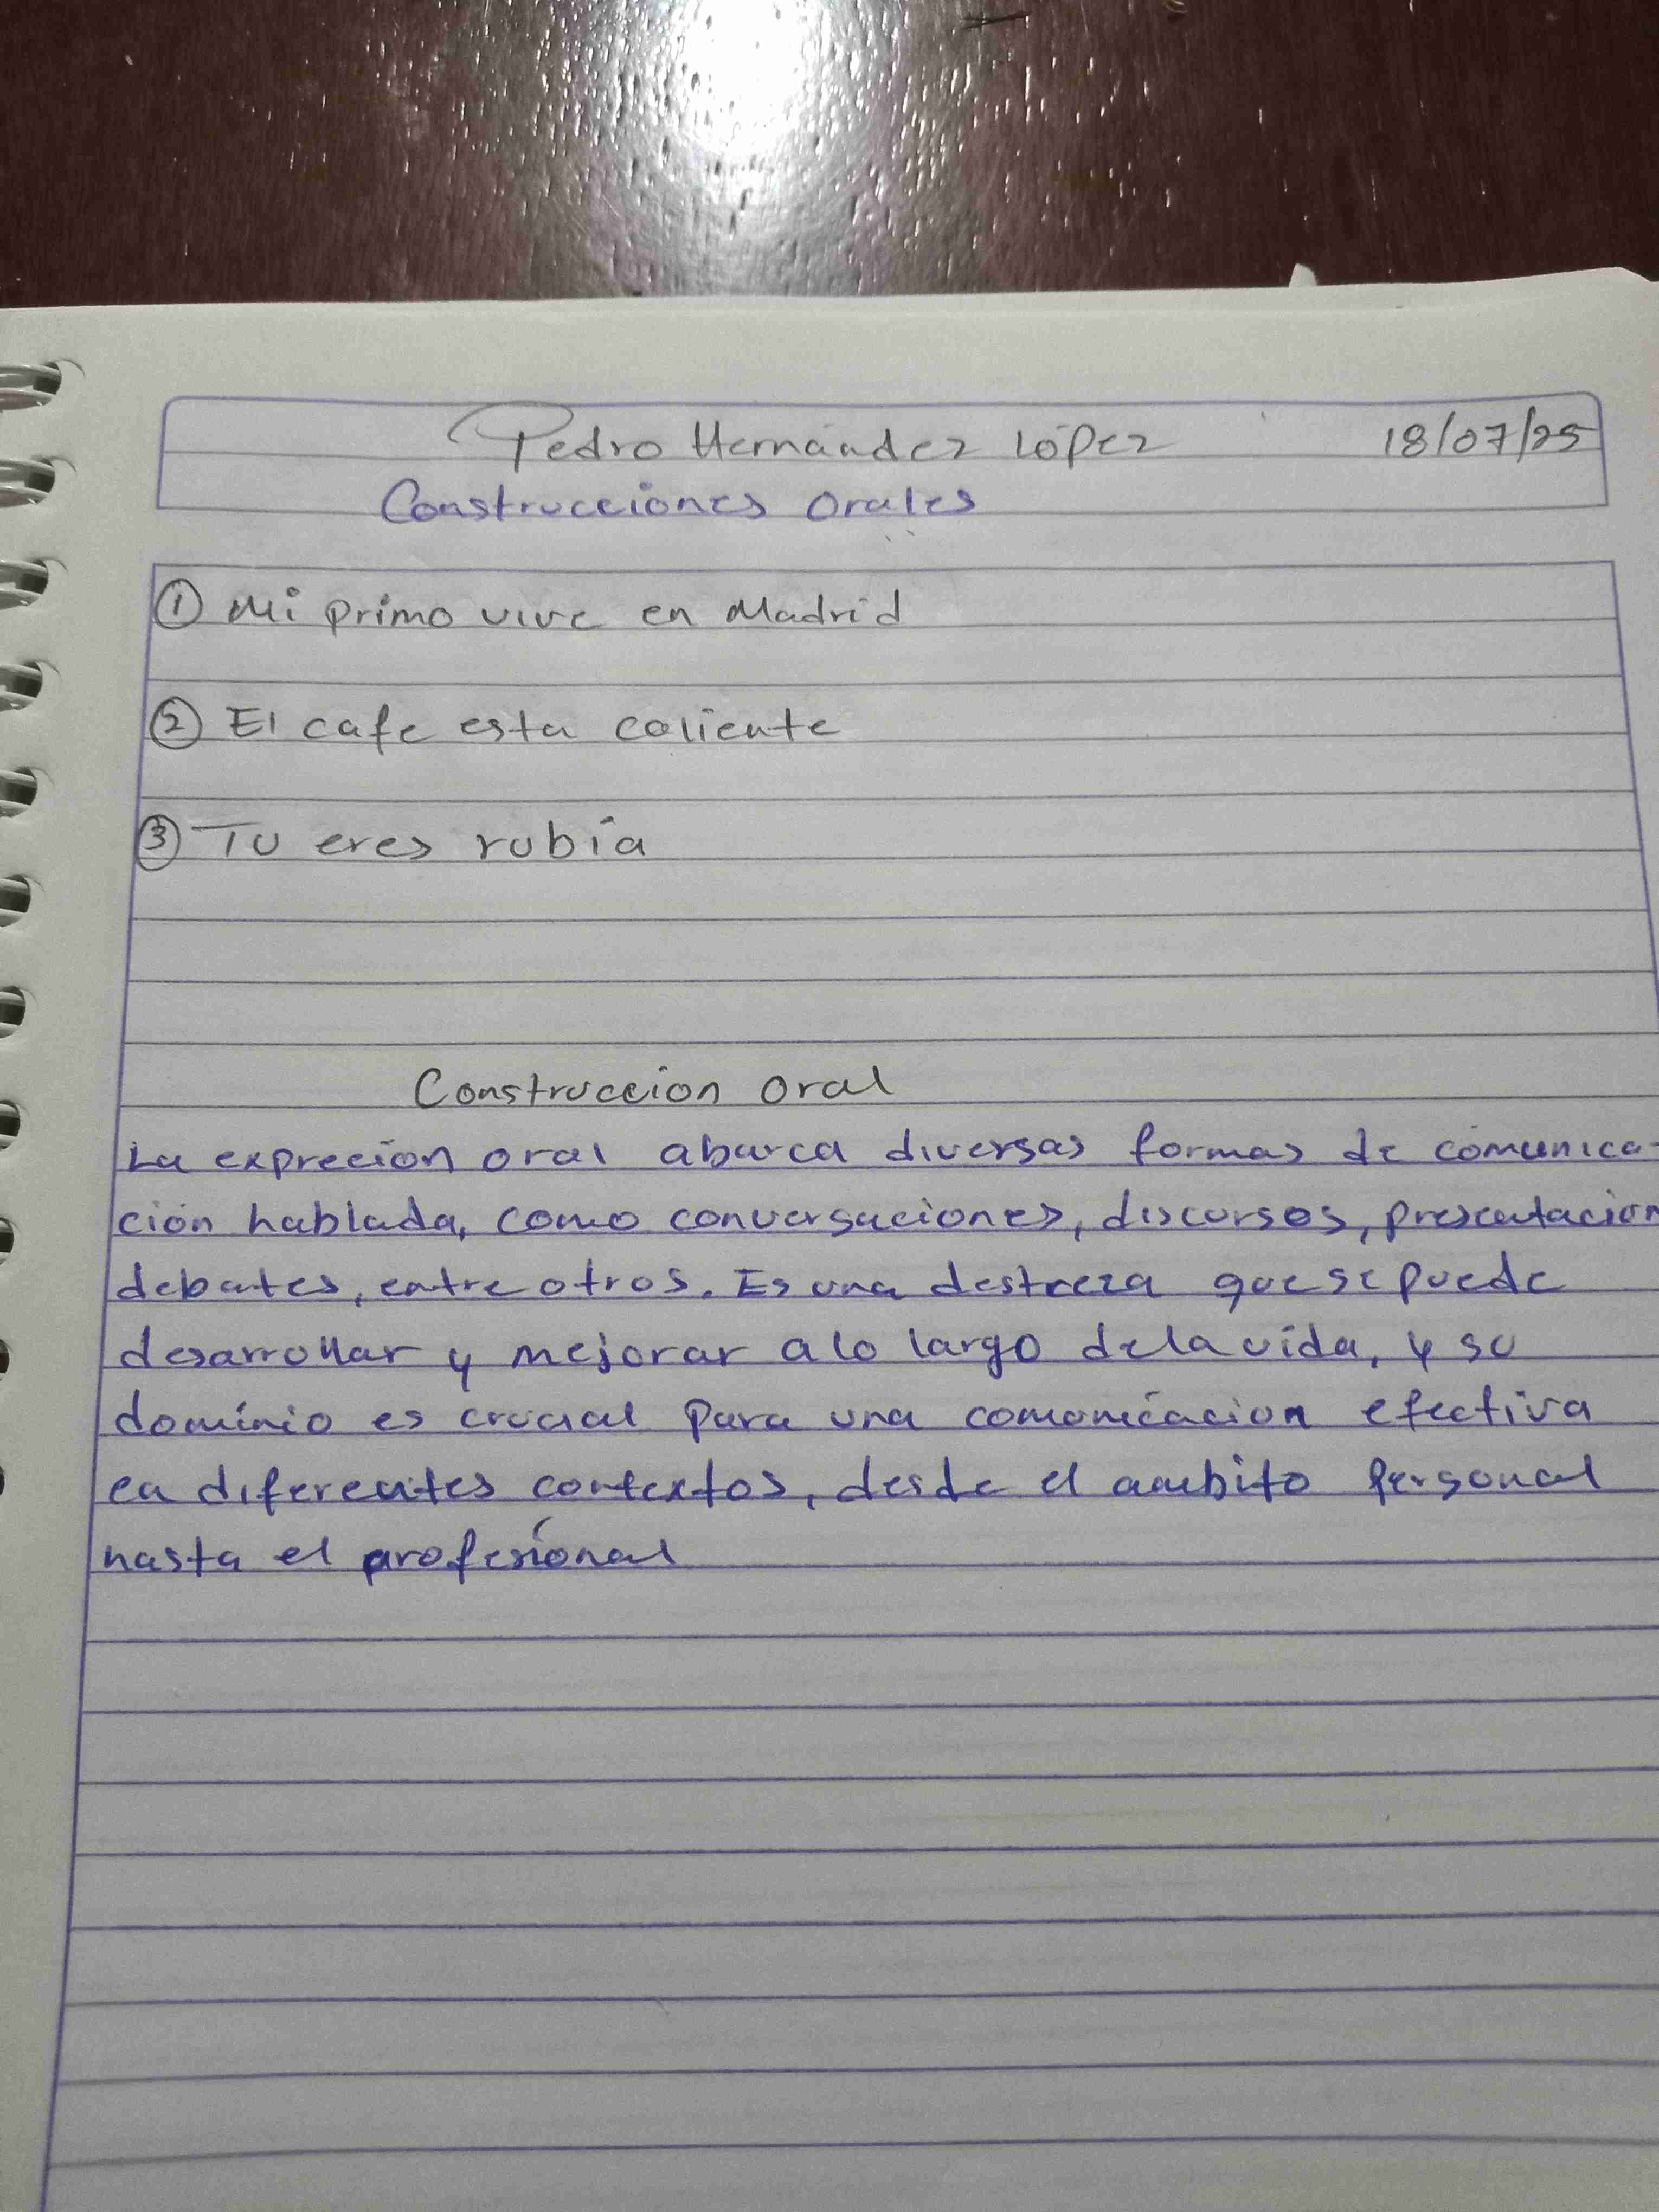 Pedro Hernández López 18/07/25
Construcciones orales
① Mi primo vive en Madrid
② El cafe esta caliente
③ Tu eres rubia
Construccion oral
La exprecion oral abarca diversas formas de comunica-
ción hablada, como conversaciones, discursos, presentacion
debates, entre otros. Es una destreza que se puede
desarrollar y mejorar a lo largo de la vida, y su
dominio es crucial para una comonicacion efectiva
en diferentes contextos, desde el ambito personal
hasta el profesional